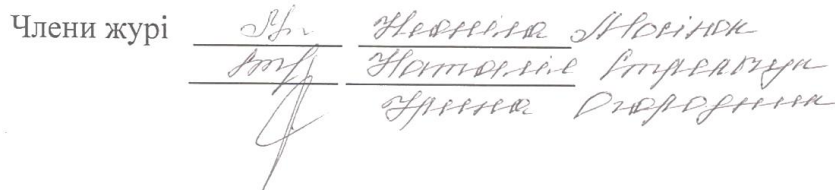 Члени журі Неоніла
Наталія Стрельчук
Ірина Огородник